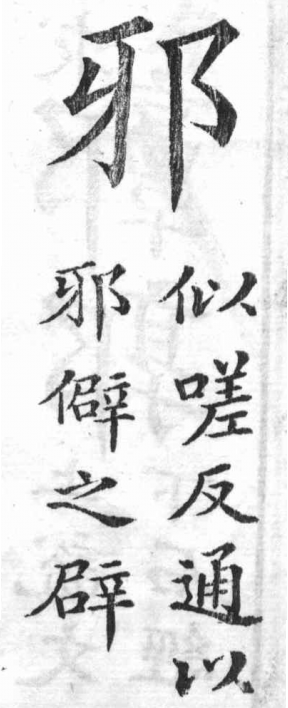 邪
似嗟反通以
邪僻之辟